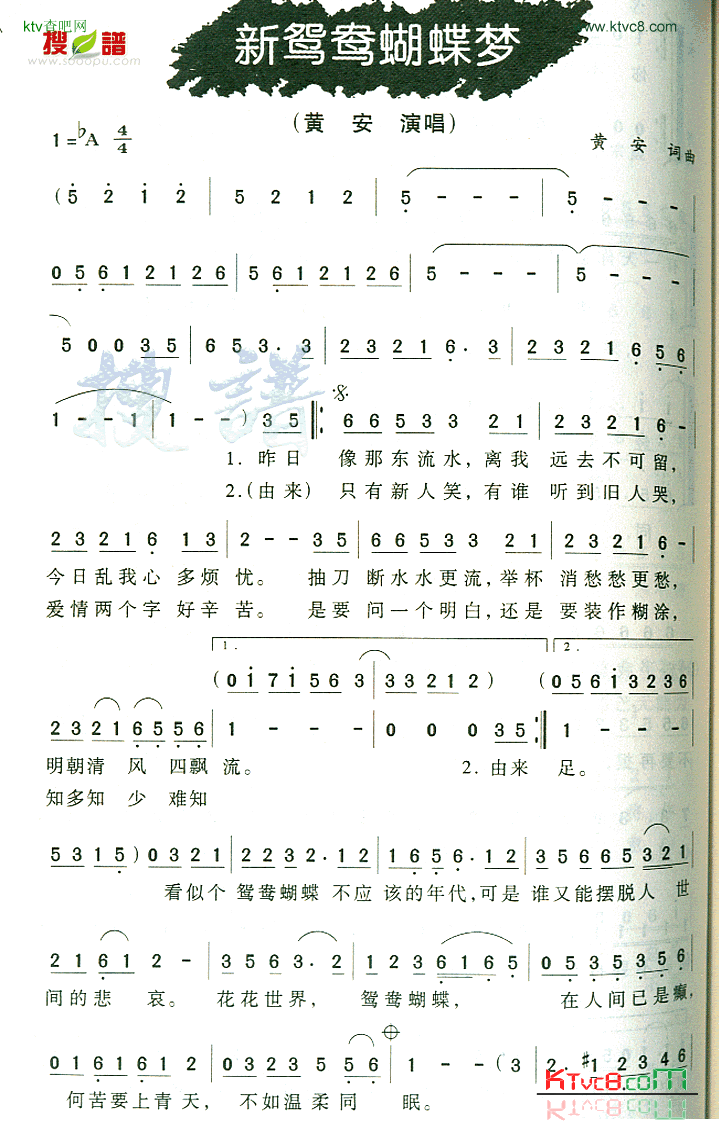 ktv查吧网
www.ktvc8.com
搜谱
www.sooopu.com
新鸳鸯蝴蝶梦
(黄 安 演唱)
1=♭A 4/4
黄 安 词曲
(5 2 i 2 | 5 2 1 2 | 5 - - - | 5 - - -
0 5 6 1 2 1 2 6 | 5 6 1 2 1 2 6 | 5 - - - | 5 - - -
5 0 0 3 5 | 6 5 3 . 3 | 2 3 2 1 6 . 3 | 2 3 2 1 6 5 6
搜谱
1 - - | 1 - - ) 3 5 |: 6 6 5 3 3 2 1 | 2 3 2 1 6 -
1. 昨日 像那东流水，离我 远去不可留，
2.(由来) 只有新人笑，有谁 听到旧人哭，
2 3 2 1 6 1 3 | 2 - - 3 5 | 6 6 5 3 3 2 1 | 2 3 2 1 6 -
今日乱我心 多烦忧。 抽刀 断水水更流，举杯 消愁愁更愁，
爱情两个字 好辛苦。 是要 问一个明白，还是 要装作糊涂，
1. 2.
(0 i 7 i 5 6 3 | 3 3 2 1 2) (0 5 6 i 3 2 3 6
2 3 2 1 6 5 5 6 | 1 - - - | 0 0 0 3 5 :| 1 - - -
明朝清 风 四飘流。 2.由来 足。
知多知 少 难知
5 3 1 5) 0 3 2 1 | 2 2 3 2 . 1 2 | 1 6 5 6 . 1 2 | 3 5 6 6 5 3 2 1
看似个 鸳鸯蝴蝶 不应 该的年代，可是 谁又能摆脱人 世
2 1 6 1 2 - | 3 5 6 3 . 2 | 1 2 3 6 1 6 5 | 0 5 3 5 3 5 6
间的悲 哀。 花花世界， 鸳鸯蝴蝶， 在人间已是癫，
0 1 6 1 6 1 2 | 0 3 2 3 5 5 6 | 1 - - (3 | 2 . #1 2 3 4 6
何苦要上青天， 不如温柔同 眠。
KTvc8.com